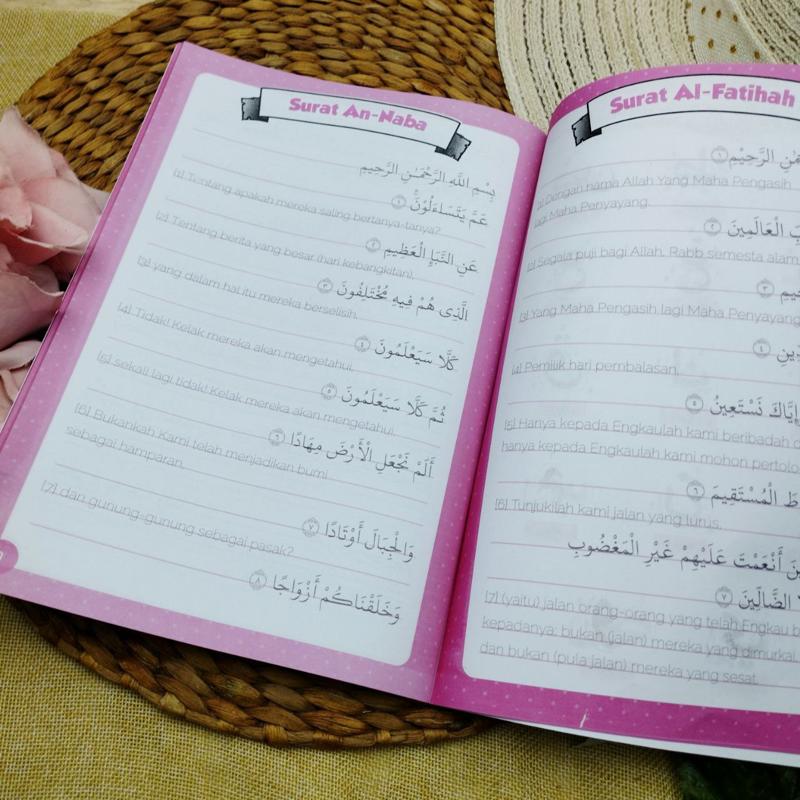 Surat An-Naba
بِسْمِ اللَّهِ الرَّحْمَٰنِ الرَّحِيمِ
عَمَّ يَتَسَاءَلُونَ ۝١
(1) Tentang apakah mereka saling bertanya-tanya?
عَنِ النَّبَإِ الْعَظِيمِ ۝٢
(2) Tentang berita yang besar (hari kebangkitan).
الَّذِي هُمْ فِيهِ مُخْتَلِفُونَ ۝٣
(3) yang dalam hal itu mereka berselisih.
كَلَّا سَيَعْلَمُونَ ۝٤
(4) Tidak! Kelak mereka akan mengetahui,
ثُمَّ كَلَّا سَيَعْلَمُونَ ۝٥
(5) sekali lagi tidak! Kelak mereka akan mengetahui.
أَلَمْ نَجْعَلِ الْأَرْضَ مِهَادًا ۝٦
(6) Bukankah Kami telah menjadikan bumi
sebagai hamparan,
وَالْجِبَالَ أَوْتَادًا ۝٧
(7) dan gunung-gunung sebagai pasak?
وَخَلَقْنَاكُمْ أَزْوَاجًا ۝٨
Surat Al-Fatihah
الرَّحِيمِ ۝١
(1) Dengan nama Allah Yang Maha Pengasih
lagi Maha Penyayang.
الْعَالَمِينَ ۝٢
(2) Segala puji bagi Allah, Rabb semesta alam
۝٣
(3) Yang Maha Pengasih lagi Maha Penyayang
۝٤
(4) Pemilik hari pembalasan.
إِيَّاكَ نَسْتَعِينُ ۝٥
(5) Hanya kepada Engkaulah kami beribadah
hanya kepada Engkaulah kami mohon
الْمُسْتَقِيمَ ۝٦
(6) Tunjukilah kami jalan yang lurus,
أَنْعَمْتَ عَلَيْهِمْ غَيْرِ الْمَغْضُوبِ
الضَّالِّينَ ۝٧
(7) (yaitu) jalan orang-orang yang telah Engkau
kepadanya; bukan (jalan) mereka yang dimurkai
dan bukan (pula jalan) mereka yang sesat.